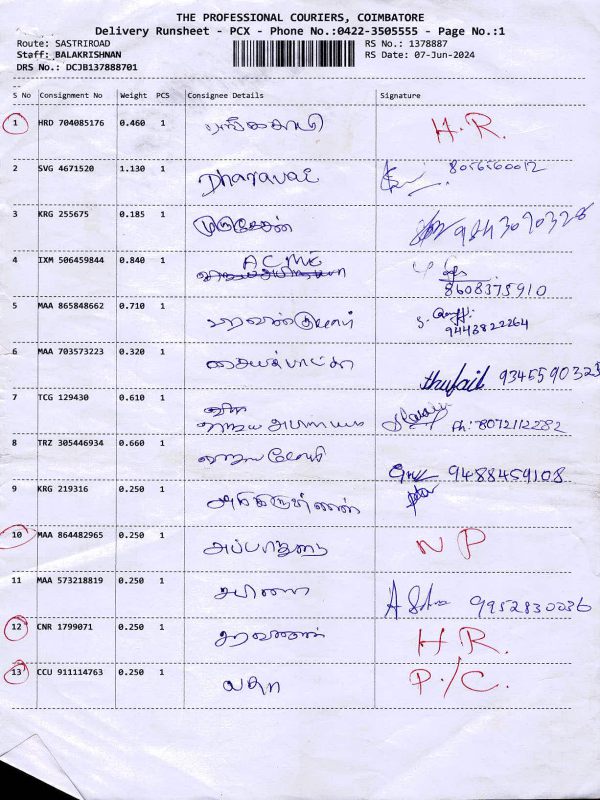 THE PROFESSIONAL COURIERS, COIMBATORE
Delivery Runsheet - PCX - Phone No.:0422-3505555 - Page No.:1
Route: SASTRIROAD RS No.: 1378887
Staff: BALAKRISHNAN RS Date: 07-Jun-2024
DRS No.: DCJB137888701
S No Consignment No Weight PCS Consignee Details Signature
1 HRD 704085176 0.460 1 H.R.
2 SVG 4671520 1.130 1 8056560012
3 KRG 255675 0.185 1 முருகேசன் 9843090328
ACME
4 IXM 506459844 0.840 1
8608375910
5 MAA 865848662 0.710 1 சரவண்குமார் S.
9443822264
6 MAA 703573223 0.320 1 thufail 9345590325
7 TCG 129430 0.610 1 Ph: 8072112282
8 TRZ 305446934 0.660 1 9488459108
9 KRG 219316 0.250 1
10 MAA 864482965 0.250 1 அப்பாதுரை NP
11 MAA 573218819 0.250 1 9952830036
12 CNR 1799071 0.250 1 சரவணன் H.R.
13 CCU 911114763 0.250 1 P./C.